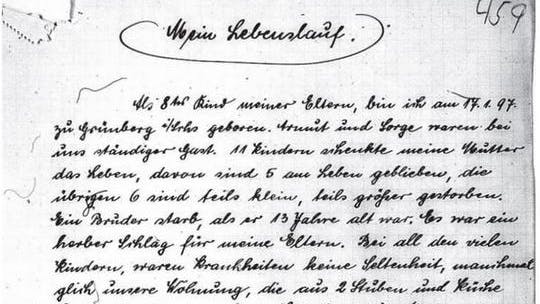 459
Mein Lebenslauf.
Als 8tes Kind meiner Eltern, bin ich am 17.1.97.
zu Grünberg geboren. Armut und Sorge waren bei
uns ständiger Gast. 11 Kindern schenkte meine Mutter
das Leben, davon sind 5 am Leben geblieben, die
übrigen 6 sind teils klein, teils größer gestorben.
Ein Bruder starb, als er 13 Jahre alt war. Es war ein
herber Schlag für meine Eltern. Bei all den vielen
Kindern, waren Krankheiten keine Seltenheit, manchmal
glich unsere Wohnung, die aus 2 Stuben und Küche